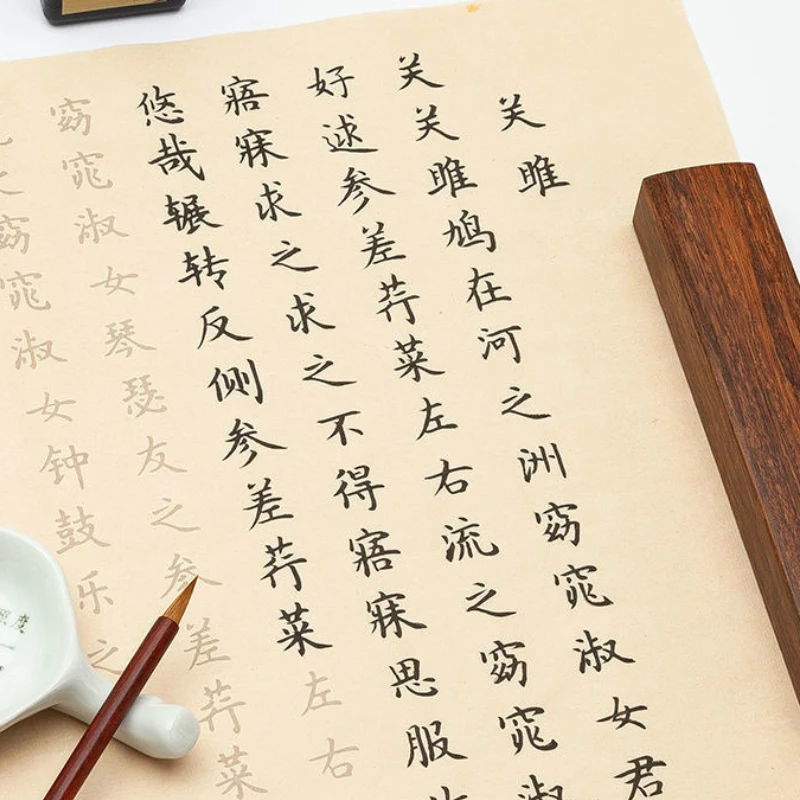 关雎
关关雎鸠在河之洲窈窕淑女君
好逑参差荇菜左右流之窈窕淑
寤寐求之求之不得寤寐思服
悠哉辗转反侧参差荇菜左右
窈窕淑女琴瑟友之参差荇菜
之窈窕淑女钟鼓乐之